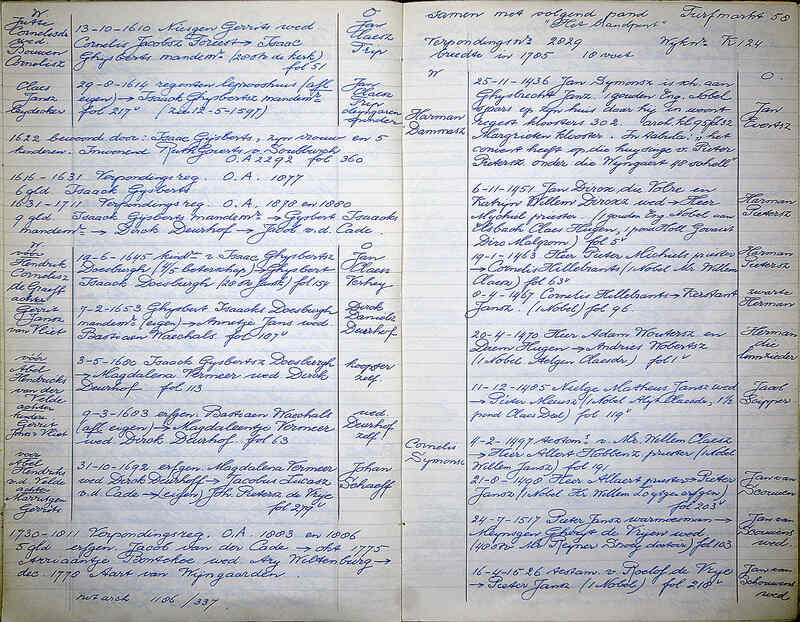 W
Jutte
Cornelisdr
wed
Bouwen
Cornelisz
13-10-1610 Niesgen Gerrits wed
Cornelis Jacobsz Foriest → Isaac
Ghysberts mandemr. (20 str de kerk)
fol 51
O
Jan
Claesz
Trip
Claes
Jansz
29-8-1614 regenten leprooshuis (afl.
eigen) → Isaack Ghysbertsz mandemr.
fol 217v (zie 12-5-1591)
Jan
Claesz
Trip
1622 bewoond door: Isaack Gijsberts, zyn vrouw en 5
kinderen. Inwonend Ruth Goverts v.
O.A 2292 fol 360
1616-1631 Verpondingsreg. O.A. 1877
6 gld Isaack Gysberts
1631-1711 Verpondingsreg. O.A. 1878 en 1880
9 gld Isaack Gysberts mandemr. → Gysbert Isaacks
mandemr. → Dirck Deurhof → Jacob v.d. Cade.
W
vóór
Hendrick
Cornelisz
de Graeff
achter
Gerrit
Jansz
van Vliet
19-6-1645 kindn. v Isaac Ghysbertsz
Doesburgh (4/5 beterschap) → Ghysbert
Isaack Doesburgh (20 str kerk) fol 154
O
Jan
Claesz
Verhey
7-2-1653 Ghysbert Isaacks Doesburgh
mandemr. (eigen) → Annetge Jans wed
Bastiaen Waechals. fol 107v
Dirck
Daniels
Deurhof
vóór
Abel
Hendricks
van der
Velde
achter
kinder
Gerrit
Jans Vliet
3-5-1680 Isaack Gysbertsz Doesburgh
→ Magdalena Vermeer wed Dirck
Deurhof fol 113
koopster
zelf.
9-3-1683 erfgen. Bastiaen Waechals
(afl. eigen) → Magdaleentje Vermeer
wed Dirck Deurhof. fol 63
wed.
Deurhof
zelf
voor
Abel
Hendricks
v.d. Velde
Marritgen
Gerrits
31-10-1692 erfgen. Magdalena Vermeer
wed Dirck Deurhoff → Jacobus Lucasz
v.d. Cade → (eigen) Joh. Pietersz de Vrye
fol 274v
Johan
Schaeff
1730-1811 Verpondingsreg. O.A. 1883 en 1886
5 gld erfgen. Jacob van der Cade → okt 1775
Arriaantje Bontekoe wed Ary Weltenburg →
dec. 1778 Aart van Wyngaarden.
not arch 1186 /337
Samen met volgend pand Turfmarkt 58
"Het Zandpunt"
Verpondingsnr. 2029 Wyknr. K 124
breedte in 1785 18 voet
W
O.
Harman
Dammasz
25-11-1436 Jan Symonsz is sch. aan
Ghysbrecht Jansz. 1 gouden Eng. Nobel
spars op zyn huis daar hij in woont
regest kloosters 302. arch kl 95 fol 32
Margrieten klooster. In tabula: "het
convent heeft op die huysinge v. Pieter
Pietersz onder die Wyngaert 48 schell"
Jan
Evertsz
6-11-1451 Jan Dircx die Volre en
Katryn Willem Dircxz wed → Heer
Mychiel priester (1 gouden Eng Nobel aan
Elsbach Claes Heygen, 1 pond Holl Goverit
Dirc Malgrom) fol 5v
Harman
Pietersz
19-1-1463 Heer Pieter Michiels priester
→ Cornelis Hillebrants (1 Nobel Mr Willem
Claesz) fol 63v
Harman
Pietersz
8-4-1467 Cornelis Hillebrants → Kerstant
Jansz. (1 Nobel) fol 96.
zwarte
Herman
20-4-1470 Heer Adam Woutersz en
Diem Hugen → Andries Nobertsz
(1 Nobel Aelgen Claesdr) fol 1v
Herman
die
11-12-1485 Neelge Matheus Jansz wed
→ Pieter Meusz (1 Nobel Alyt Claesdr, 1½
pond Claes Deel) fol 119v
Jacob
Scipper
Cornelis
Symonsz
4-2-1497 testamt. v. Mr. Willem Claesz
→ Heer Allert Hobbenz priester (1 Nobel
Willem Jansz) fol 191
21-8-1498 Heer Allaert priester → Pieter
Jansz (1 Nobel Mr Willem Loytge erfgen)
fol 203v
Jan van
Scouwen
24-7-1517 Pieter Jansz warmoesman →
Meynsgen Gheryt de Vryen wed
(40 str Mr Reyner Snoy doctor) fol 103
Jan van
Scouwens
wed.
16-4-1526 testam. v. Roelof de Vrye
→ Pieter Jansz (1 Nobel) fol 218v
Jan van
Schouwens
wed